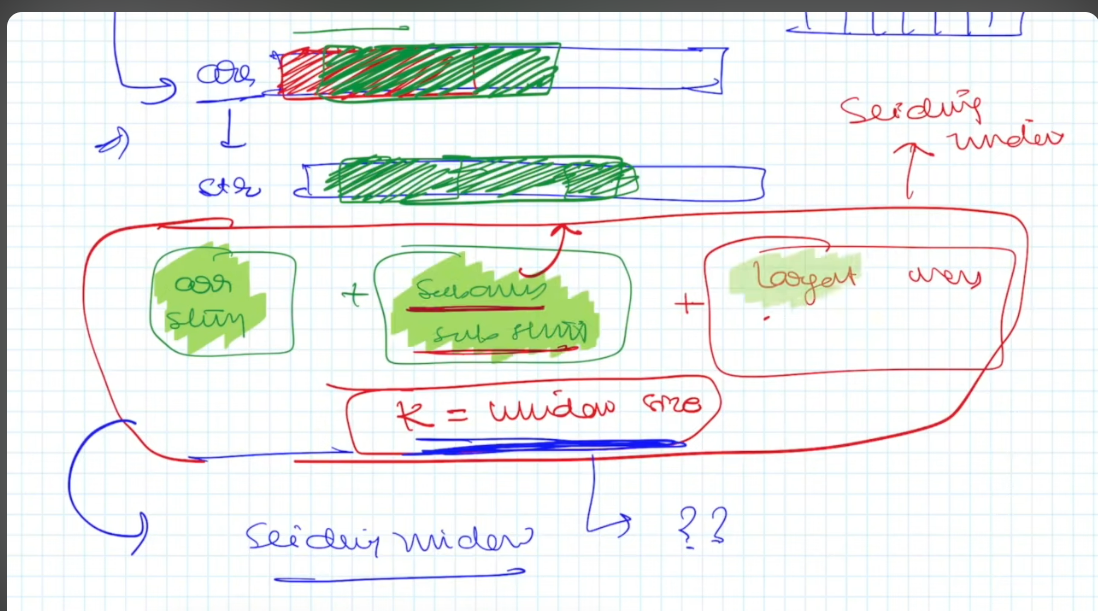 arr
Sliding
window
2)
str
arr
string
+
subarray
sub string
+
largest
K = window size
Sliding window
??